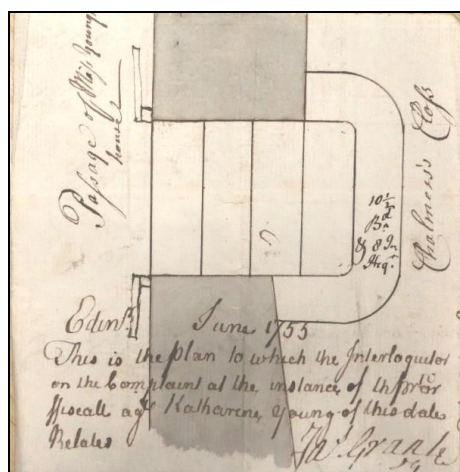 Passage of Mrs Youngs
house
Chalmers's Closs
10 1/2
Bd
& 8 In
Hig.t
Edinr June 1755
This is the plan to which the Interloquitor
on the Complaint at the instance of the pror
ffiscall agt Katharine Young of this date
Relates
Ja: Grant